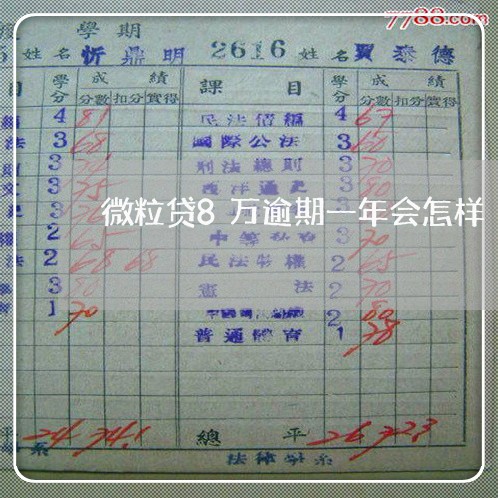 7788.com
學期
姓名 忻鼎明 2616 姓名 賈泰德
目 學分 成績 課目 學分 成績
分數 扣分 實得 分數 扣分 實得
4 81 民法債編 4 67
法 3 68 國際公法 3 60
3 刑法總則 3 70
文 3 75 西洋通史 3 80
微粒贷8万逾期一年会怎样
2 65 3 70
法 2 68 68 民法物權 2 65
3 80 憲法 2 70
1 70 2 80
普通體育 1 78
平 24 74.1 總平 26 72.3
系 法律學系